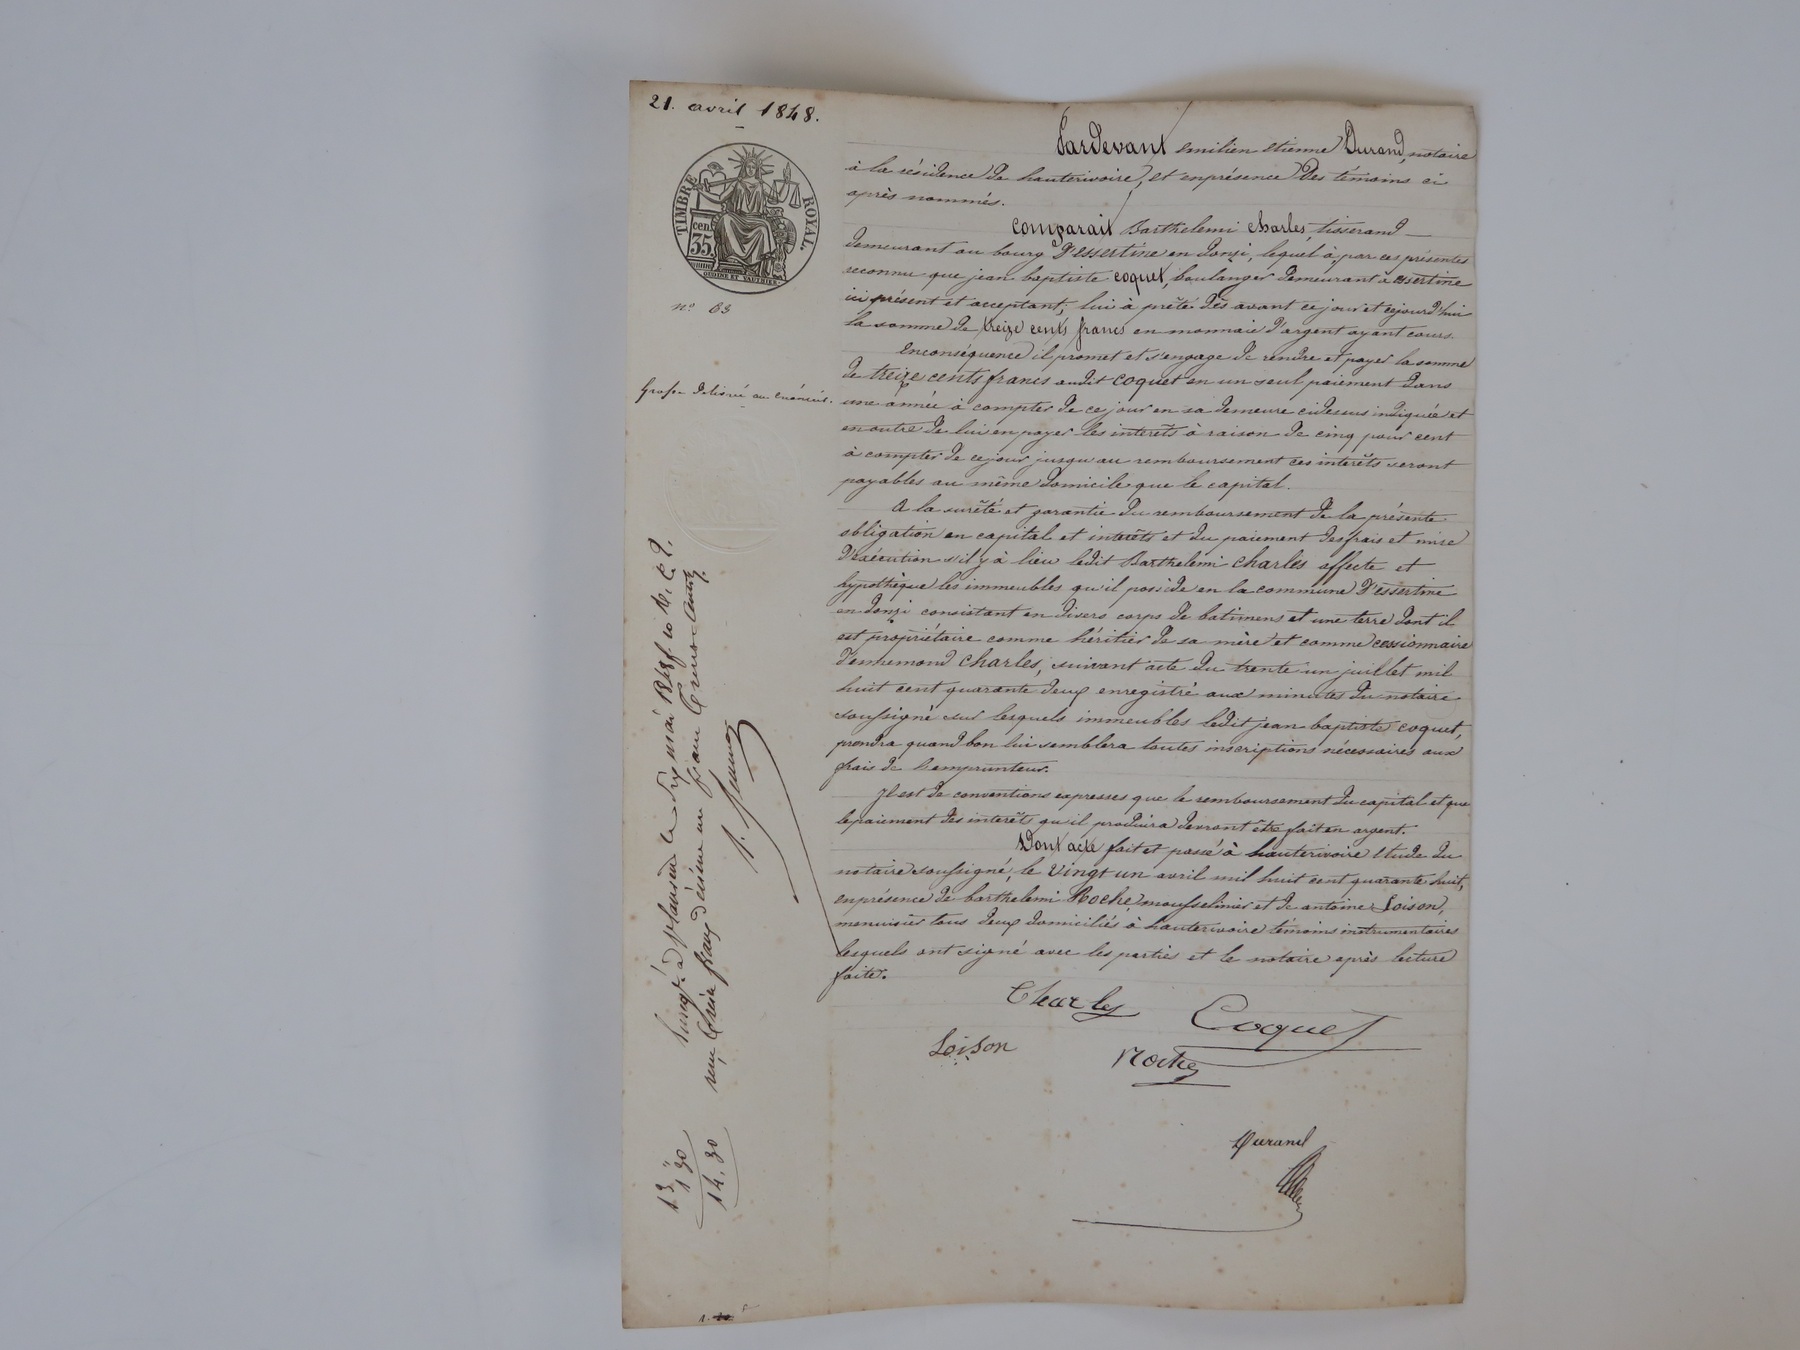 21. avril 1848.
TIMBRE ROYAL.
cen.
35.
OUDINÉ ET VAUTHIER
n° 63
Grosse délivrée au créancier.
Pardevant emilien etienne Durand, notaire
à la résidence de hauterivoire, et enprésence des témoins ci
après nommés.
Comparait Barthelemi Charles, tisserand
demeurant au bourg d'essertine en donzi, lequel à par ces présentes
reconnu que jean baptiste coquet, boulanger demeurant à essertine
ici présent et acceptant, lui à prêté dès avant cejour et cejourd'hui
la somme de treize cents francs en monnaie d'argent ayant cours.
Enconséquence il promet et s'engage de rendre et payer la somme
de treize cents francs audit coquet en un seul paiement dans
une année à compter de ce jour en sa demeure cidessus indiquée et
enoutre de lui en payer les interêts à raison de cinq pour cent
à compter de cejour jusqu'au remboursement ces interêts seront
payables au même domicile que le capital.
A la surêté et garantie du remboursement de la présente
obligation en capital et interêts et du paiement des frais et mise
d'exécution s'il y à lieu ledit Barthelemi charles affecte et
hypothèque les immeubles qu'il possède en la commune d'essertine
en donzi consistant en divers corps de batimens et une terre dont il
est propriétaire comme héritier de sa mère et comme cessionnaire
d'ennemond charles, suivant acte du trente un juillet mil
huit cent quarante deux enregistré aux minutes du notaire
soussigné sur lesquels immeubles ledit jean baptiste coquet,
prendra quand bon lui semblera toutes inscriptions nécessaires aux
frais de l'emprunteur.
Il est de conventions expresses que le remboursement du capital et que
lepaiement des interêts qu'il produira devront être fait en argent.
Dont acte fait et passé à hauterivoire étude du
notaire soussigné, le vingt un avril mil huit cent quarante huit,
enprésence de barthelemi Roche mousselinier et de antoine Loison,
menuisier tous deux domiciliés à hauterivoire témoins instrumentaires
lesquels ont signé avec les parties et le notaire après lecture
faite.
Charles
Coquet
Loison
Roche
Durand
à le dix mai
reçu treize francs décime un franc trente centimes
13 "
1 30
14. 30